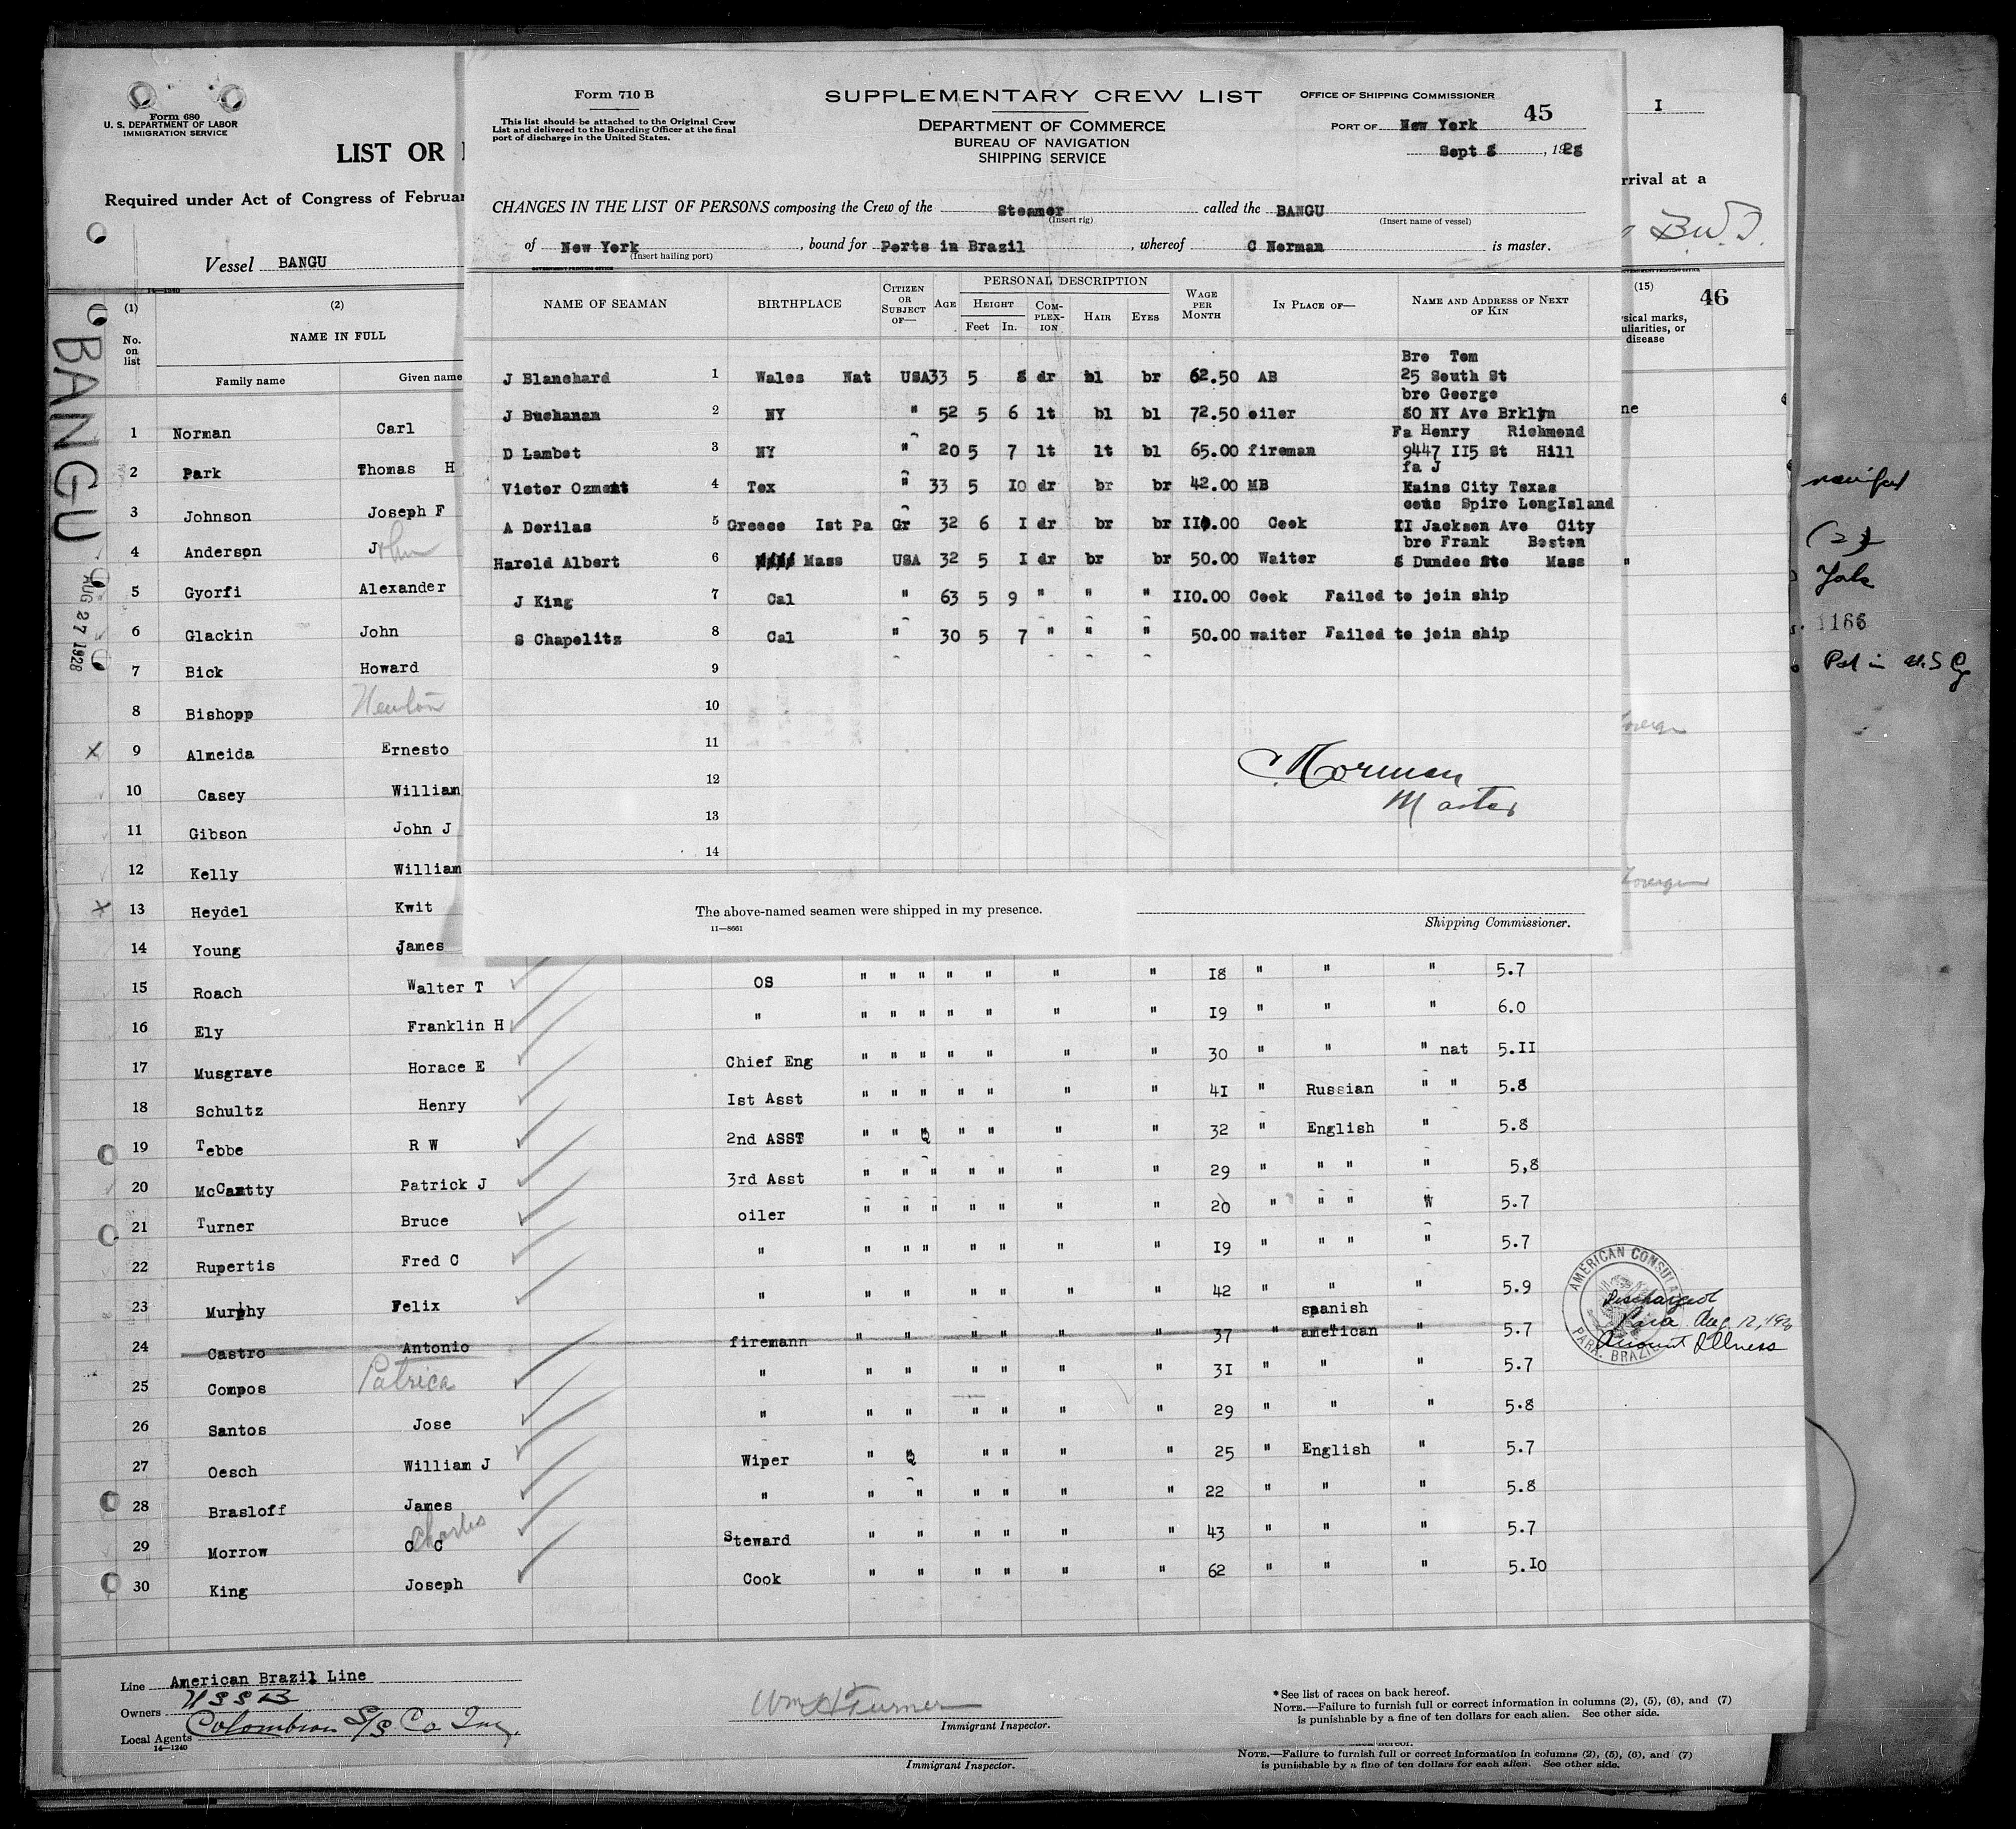 Form 710 B
This list should be attached to the Original Crew
List and delivered to the Boarding Officer at the final
port of discharge in the United States.
SUPPLEMENTARY CREW LIST
DEPARTMENT OF COMMERCE
BUREAU OF NAVIGATION
SHIPPING SERVICE
OFFICE OF SHIPPING COMMISSIONER
45
PORT OF New York
Sept 8, 1928
CHANGES IN THE LIST OF PERSONS composing the Crew of the Steamer called the BANGU
(Insert rig) (Insert name of vessel)
of New York, bound for Ports in Brazil, whereof C Norman is master.
(Insert hailing port)
GOVERNMENT PRINTING OFFICE
NAME OF SEAMAN BIRTHPLACE CITIZEN OR SUBJECT OF— AGE PERSONAL DESCRIPTION HEIGHT Feet In. COMPLEXION HAIR EYES WAGE PER MONTH IN PLACE OF— NAME AND ADDRESS OF NEXT OF KIN
Bro Tom
J Blanchard 1 Wales Nat USA 33 5 8 dr bl br 62.50 AB 25 South St
bro George
J Buchanan 2 NY " 52 5 6 lt bl bl 72.50 oiler 80 NY Ave Brklyn
Fa Henry Richmond
D Lambet 3 NY " 20 5 7 lt lt bl 65.00 fireman 9447 II5 St Hill
fa J
Victor Ozment 4 Tex " 33 5 I0 dr br br 42.00 MB Kains City Texas
cous Spiro LongIsland
A Dorilas 5 Greece Ist Pa Gr 32 6 I dr br br II0.00 Cook II Jackson Ave City
bro Frank Boston
Harold Albert 6 Mass USA 32 5 I dr br br 50.00 Waiter 8 Dundee Ste Mass
J King 7 Cal " 63 5 9 " " " II0.00 Cook Failed to join ship
S Chapelitz 8 Cal " 30 5 7 " " " 50.00 waiter Failed to join ship
9
10
11
12
13
14
C. Norman
Master
The above-named seamen were shipped in my presence.
11—8661
Shipping Commissioner.
Form 680
U. S. DEPARTMENT OF LABOR
IMMIGRATION SERVICE
LIST OR
Required under Act of Congress of Februar
rrival at a
I
B.W.I.
Vessel BANGU
14—1240
BANGU
AUG 27 1928
(1) (2) (15) 46
No. on list NAME IN FULL
Family name Given name
sical marks,
uliarities, or
disease
1 Norman Carl
2 Park Thomas H
3 Johnson Joseph F
4 Anderson John
5 Gyorfi Alexander
6 Glackin John
7 Bick Howard
8 Bishopp Newton
9 Almeida Ernesto
10 Casey William
11 Gibson John J
12 Kelly William
13 Heydel Kwit
14 Young James
15 Roach Walter T OS " " " " " " " 18 " " " 5.7
16 Ely Franklin H " " " " " " " " 19 " " " 6.0
17 Musgrave Horace E Chief Eng " " " " " " " 30 " " " nat 5.II
18 Schultz Henry Ist Asst " " " " " " " 41 " Russian " " 5.8
19 Tebbe R W 2nd ASST " " Q " " " " 32 " English " 5.8
20 McCamtty Patrick J 3rd Asst " " " " " " " 29 " " " " 5,8
21 Turner Bruce oiler " " " " " " " 20 " " " W 5.7
22 Rupertis Fred C " " " " " " " " 19 " " " " 5.7
23 Murphy Felix " " " " " " " " 42 " " " 5.9
24 Castro Antonio firemann " " " " " " 37 " spanish american " 5.7
25 Compos Patrica " " " " " " " 31 " " " 5.7
26 Santos Jose " " " " " " " 29 " " " 5.8
27 Oesch William J Wiper " Q " " " " 25 " English " 5.7
28 Brasloff James " " " " " " " 22 " " " 5.8
29 Morrow C C Charles Steward " " " " " " 43 " " " 5.7
30 King Joseph Cook " " " " " " 62 " " " 5.10
AMERICAN CONSULA
PARA, BRAZIL
Discharged
Para Aug. 12, 192
Account Illness
manifest
(2)
1166
Pd in U.S Cy
Line American Brazil Line
Owners USSB
Local Agents Colombian S/S Co Inc,
14—1240
Wm H Turner
Immigrant Inspector.
*See list of races on back hereof.
NOTE.—Failure to furnish full or correct information in columns (2), (5), (6), and (7)
is punishable by a fine of ten dollars for each alien. See other side.
Immigrant Inspector.
NOTE.—Failure to furnish full or correct information in columns (2), (5), (6), and (7)
is punishable by a fine of ten dollars for each alien. See other side.